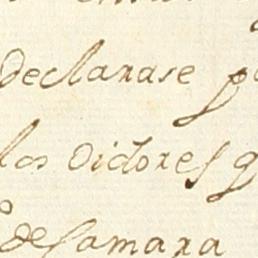 declarase
los Oidores q
de Camara